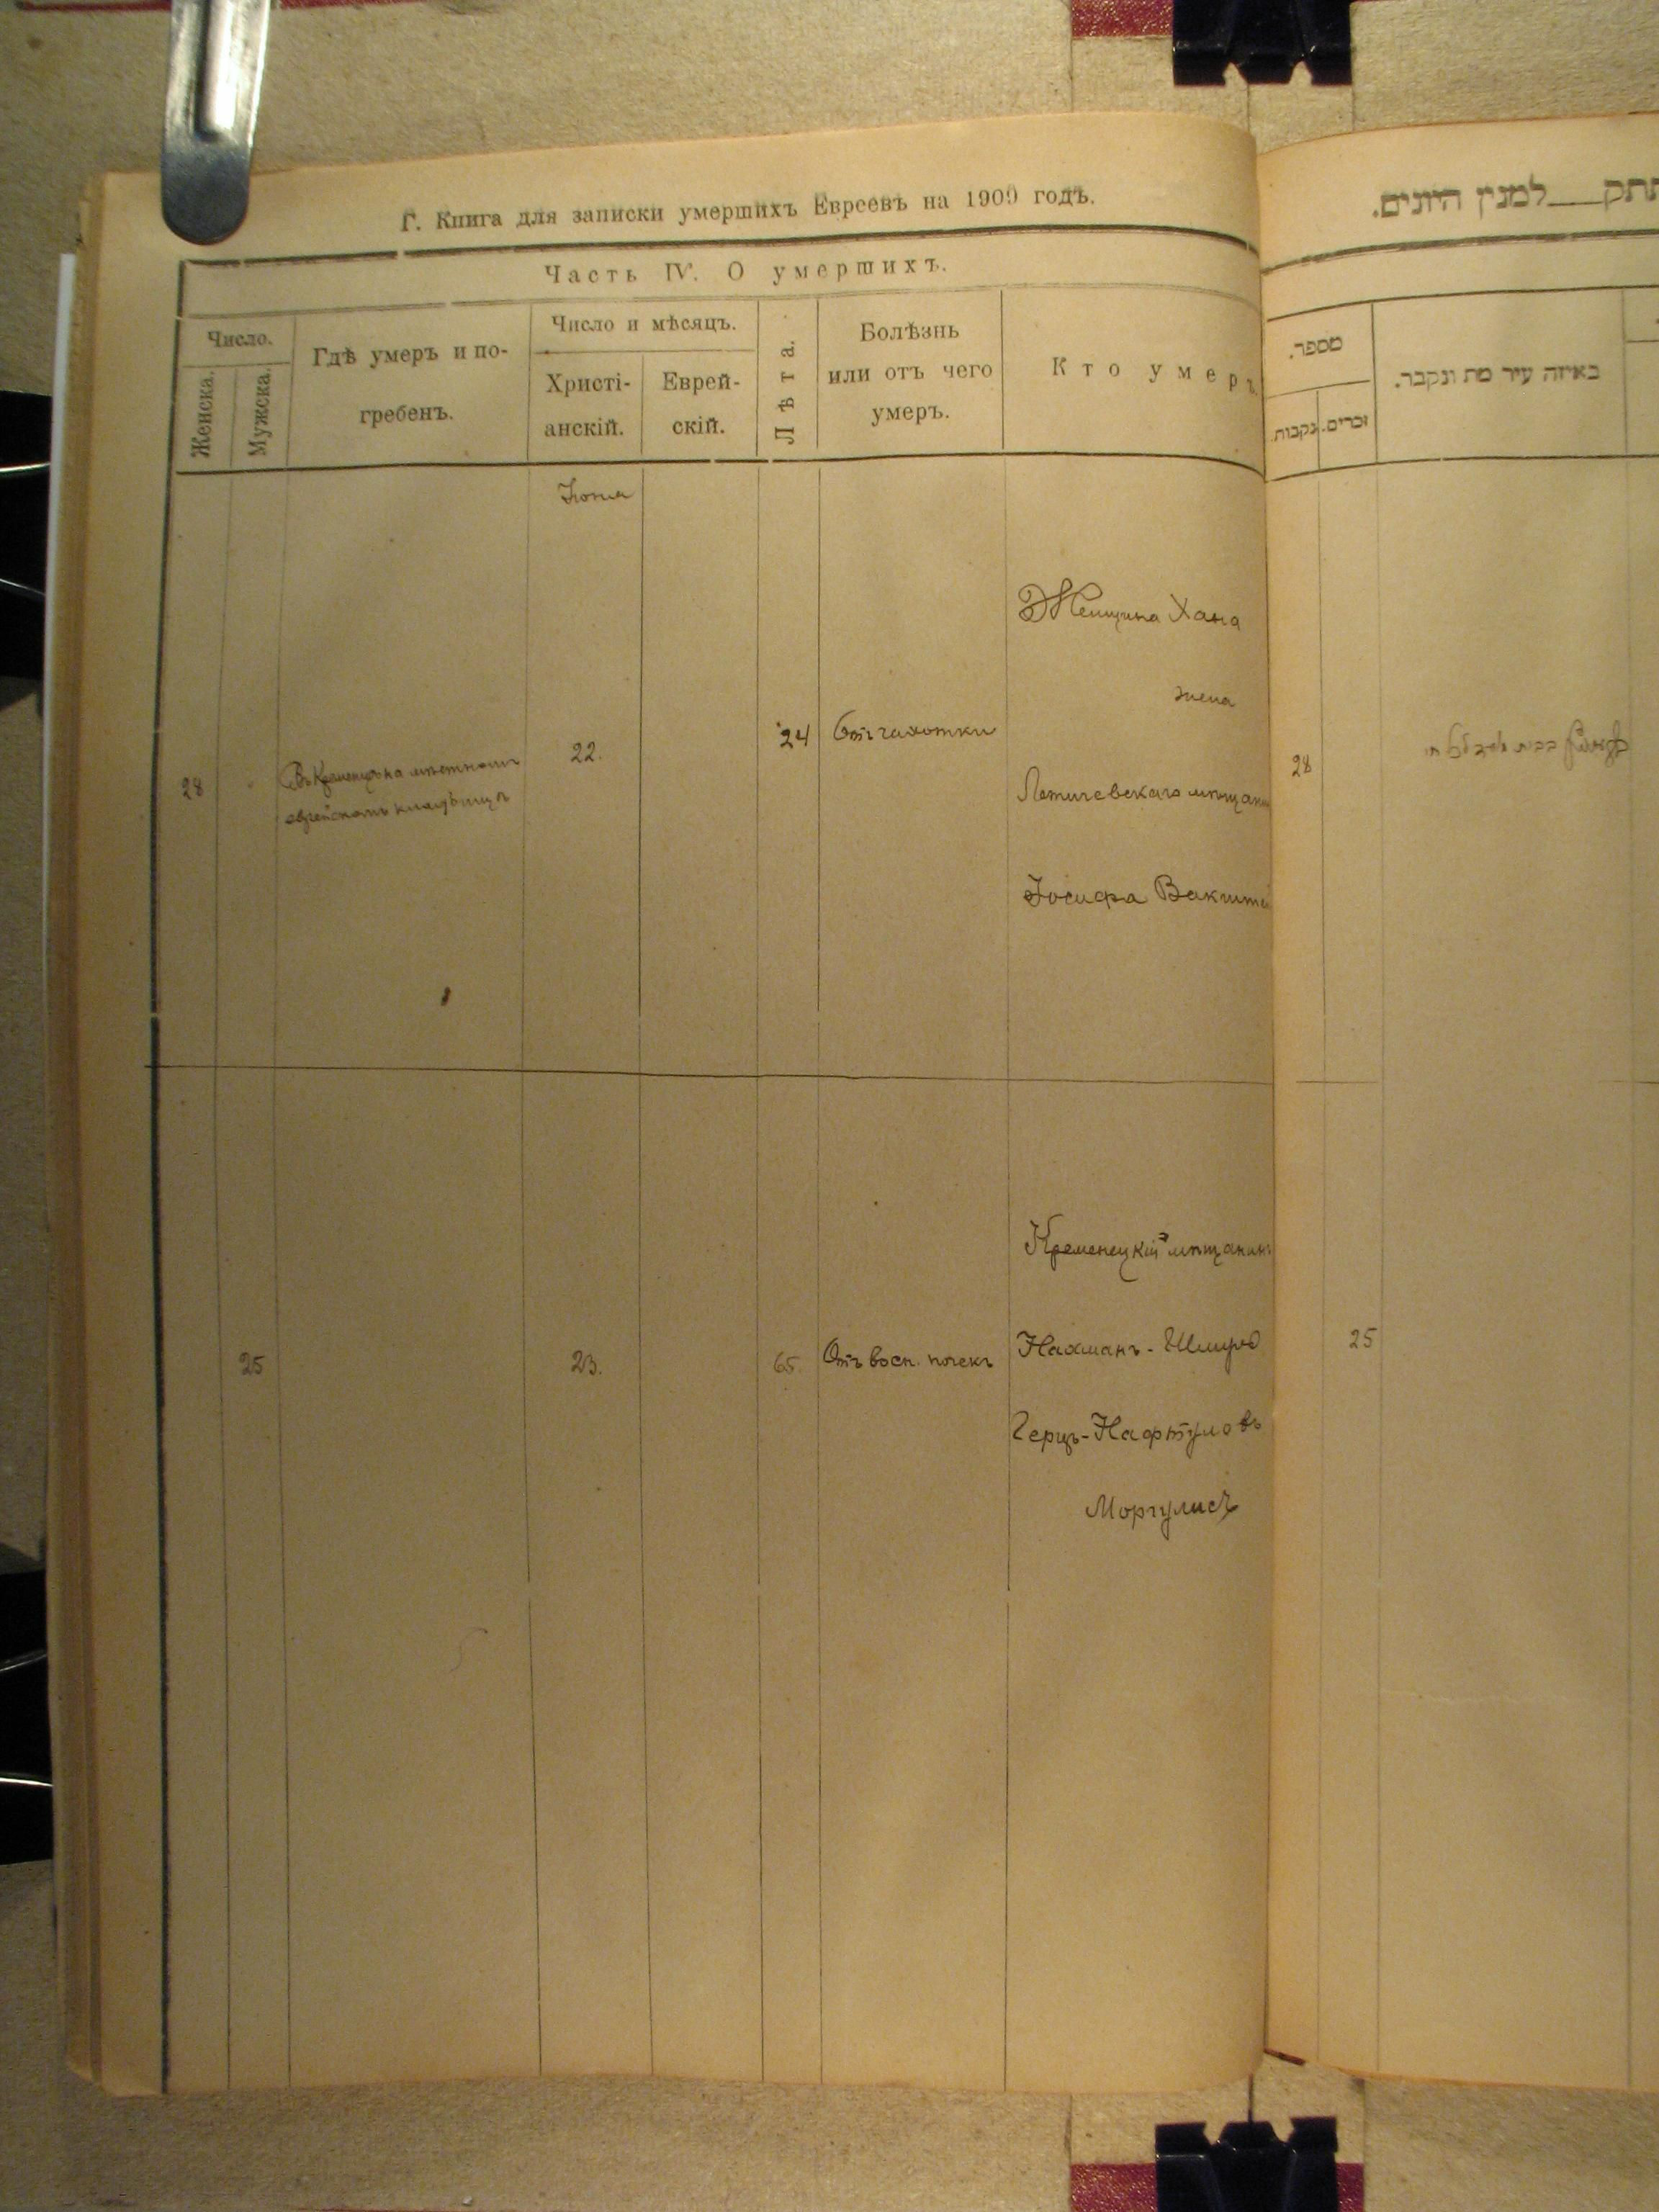 Г. Книга для записки умершихъ Евреевъ на 1909 годъ.
Часть IV. О умершихъ.
Число.
Женска.
Мужска.
Гдѣ умеръ и по-
гребенъ.
Число и мѣсяцъ.
Христі-
анскій.
Еврей-
скій.
Лѣта.
Болѣзнь
или отъ чего
умеръ.
Кто умеръ.
28
Въ Кременцѣ на мѣстномъ
еврейскомъ кладбищѣ
22.
24
Отъ чахотки
Женщина Хана
жена
Летичевскаго мѣщани
Іосифа
25
23.
65.
Отъ восп. почекъ
Кременецкій мѣщанинъ
Нахманъ-
Герцъ-Нафтуловъ
Моргулисъ
למנין היונים.
מספר.
נקבות
זכרים.
באיזה עיר מת ונקבר.
28
25